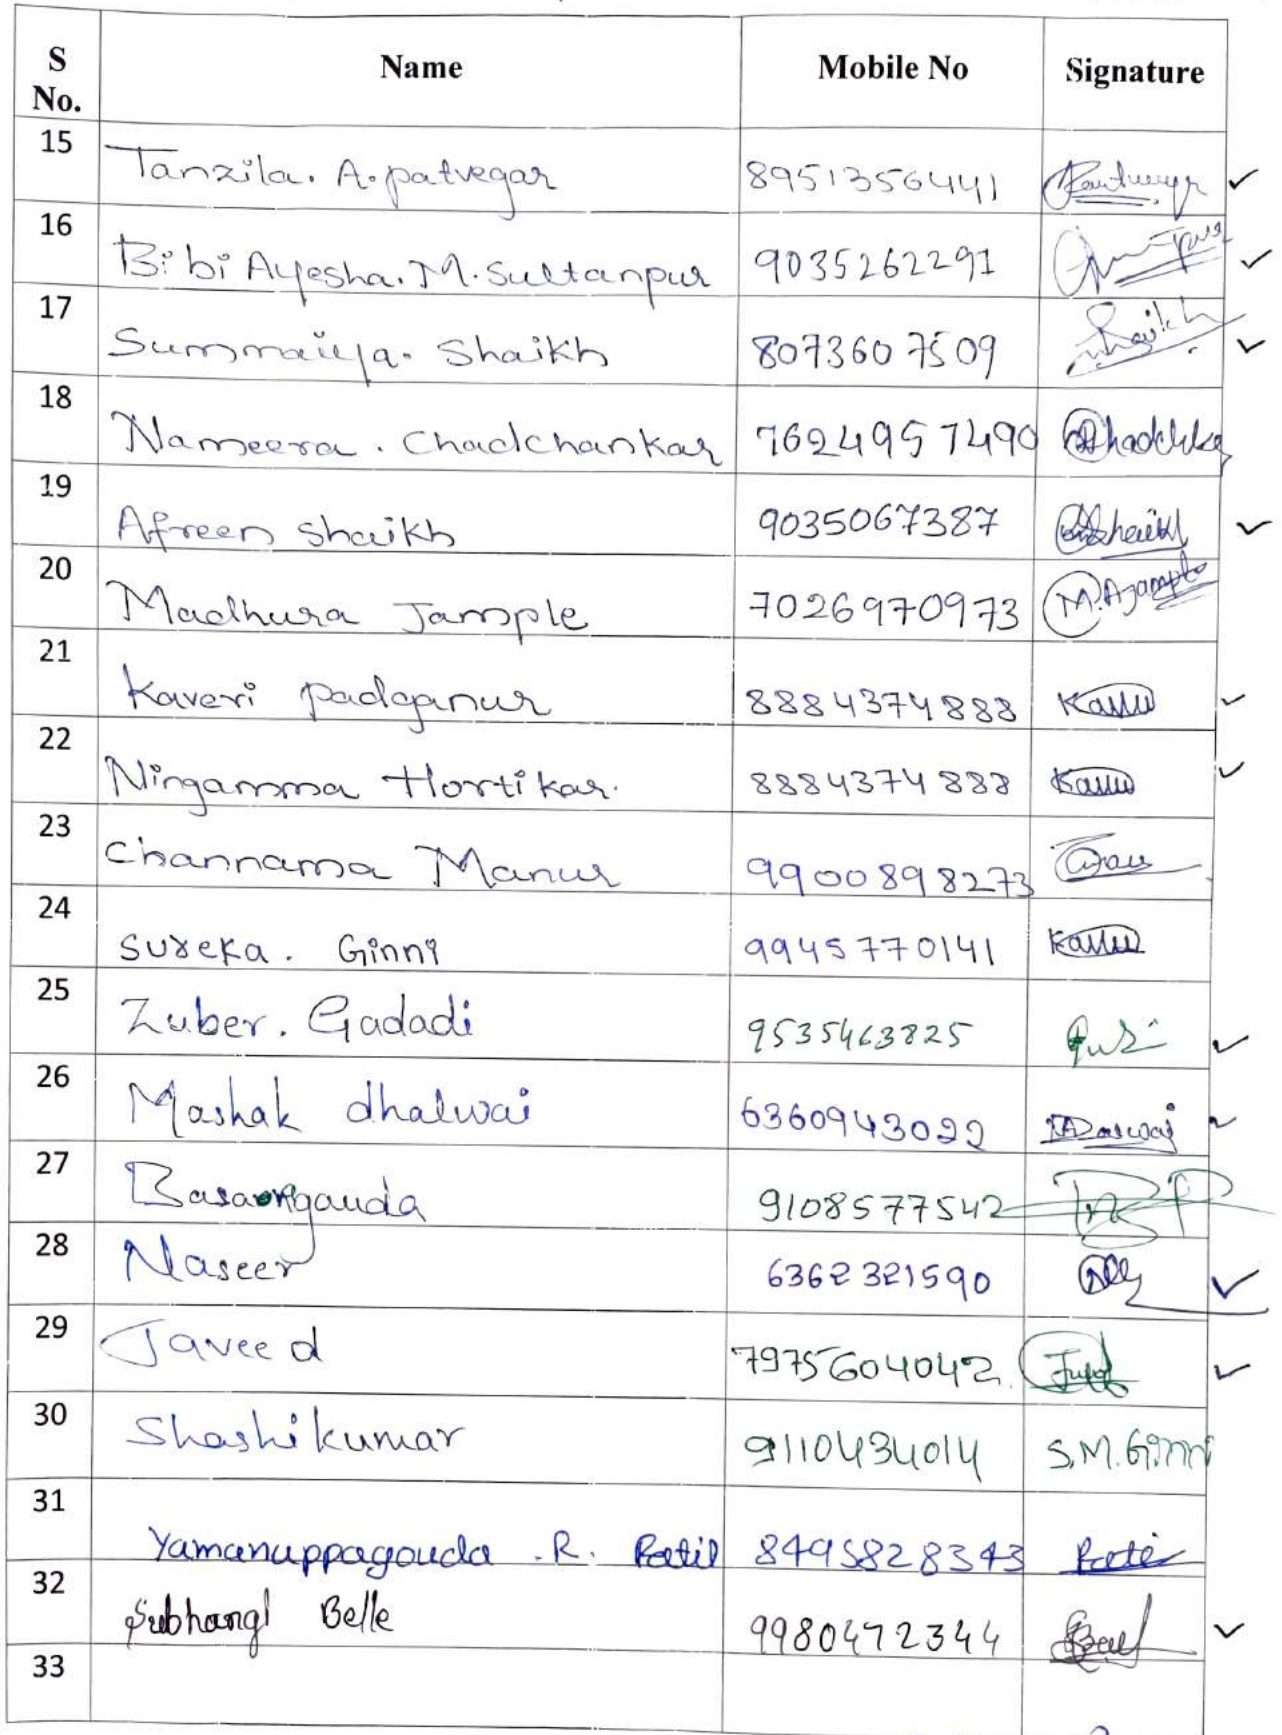 S No. Name Mobile No Signature
15 Tanzila. A. patvegar 8951356441
16 Bibi Ayesha. M. Sultanpur 9035262291
17 Summaiya. Shaikh 8073607509 Shaikh
18 Nameera. Chadchankar 7624957490
19 Afreen Shaikh 9035067387 Shaikh
20 Madhura Jample 7026970973 M.A Jample
21 Kaveri padaganur 8884374888 Kavu
22 Ningamma Hortikar. 8884374888 Kavu
23 Channama Manur 9900898273
24 sureka. Ginni 9945770141 Kavu
25 Zuber. Gadadi 9535463825
26 Mashak dhalwai 6360943022
27 Basaongauda 9108577542
28 Naseer 6362321590
29 Javeed 7975604042
30 Shashikumar 9110434014 S.M. Ginni
31 Yamanuppagouda . R. Patil 8495828343
32 Subhangi Belle 9980472344
33